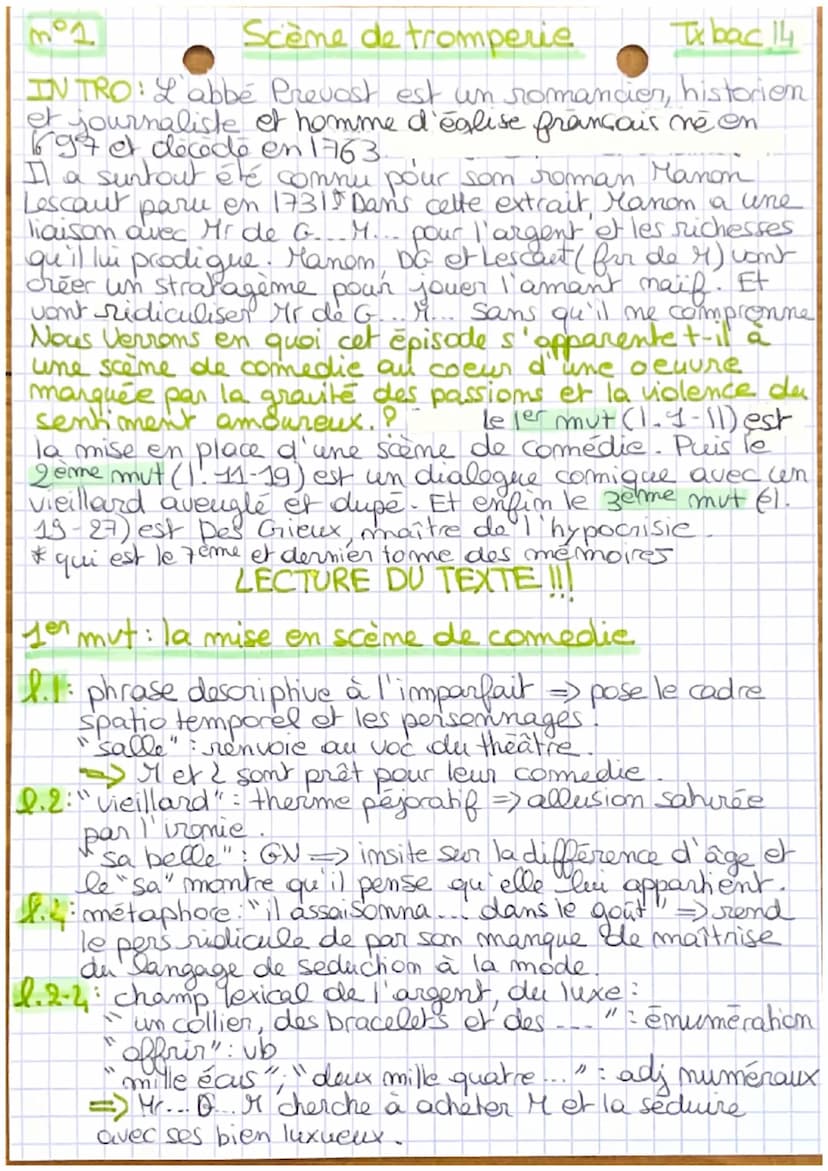 n°1 Scène de tromperie Tx bac 14
INTRO: L'abbé Prevost est un romancier, historien
et journaliste et homme d'église français né en
1697 et décédé en 1763.
Il a surtout été connu pour son roman Manon
Lescaut paru en 1731* Dans cette extrait, Manon a une
liaison avec Mr de G...M... pour l'argent et les richesses
qu'il lui prodigue. Manon, DG et Lescaut (frr de M) vont
créer un stratagème pour jouer l'amant naïf. Et
vont ridiculiser Mr de G...M... sans qu'il ne comprenne
Nous Verrons en quoi cet épisode s'apparente t-il à
une scène de comedie au coeur d'une oeuvre
marquée par la gravité des passions et la violence du
sentiment amoureux.? le 1er mvt (l.1-11) est
la mise en place d'une scène de comédie. Puis le
2ème mvt (l.11-19) est un dialogue comique avec un
vieillard aveuglé et dupé. Et enfin le 3ème mvt (l.
19-27) est Des Grieux, maître de l'hypocrisie.
* qui est le 7ème et dernier tome des mémoires
LECTURE DU TEXTE !!!
1er mvt: la mise en scène de comedie
l.1: phrase descriptive à l'imparfait => pose le cadre
spatio temporel et les personnages.
"salle": renvoie au voc du théâtre.
=> M et L sont prêt pour leur comedie.
l.2: "vieillard": therme péjoratif => allusion saturée
par l'ironie.
"sa belle": GN => insite sur la différence d'âge et
le "sa" montre qu'il pense qu'elle lui appartient.
l.4: métaphore: "il assaisonna... dans le goût" => rend
le pers ridicule de par son manque de maîtrise
du langage de seduction à la mode.
l.2-4: champ lexical de l'argent, du luxe:
"un collier, des bracelets et des ...": énumération
"offrir": vb
"mille écus"; "deux mille quatre...": adj numéraux
=> Mr...G...M cherche à acheter M et la séduire
avec ses bien luxueux.